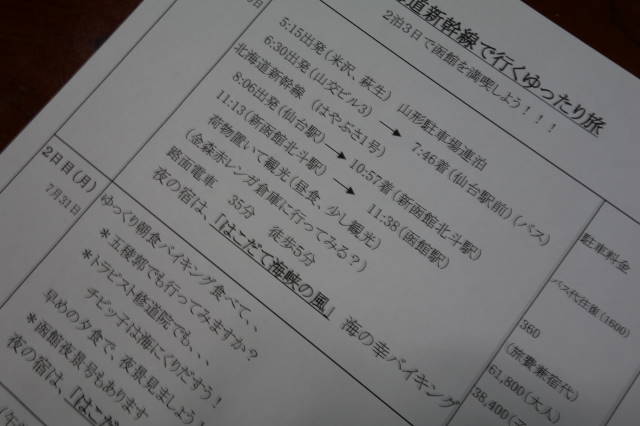 道新幹線で行くゆったり旅
2泊3日で函館を満喫しよう！！！
5:15出発（米沢、萩生） 山形駐車場連泊
6:30出発（山交ビル3） → 7:46着（仙台駅前）（バス）
北海道新幹線 （はやぶさ1号）
8:06出発（仙台駅） → 10:57着（新函館北斗駅）
11:13（新函館北斗駅） → 11:38（函館駅）
荷物置いて観光（昼食、少し観光）
（金森赤レンガ倉庫に行ってみる？）
路面電車 35分 徒歩5分
夜の宿は、「はこだて海峡の風」 海の幸バイキング
2日目（月）
7月31日
ゆっくり朝食バイキング食べて、、
＊五稜郭でも行ってみますか？
＊トラピスト修道院でも、、、
チビッ子は海にくりだすう！
早めの夕食で、夜景見ましょう！
＊函館夜景号もあります
夜の宿は、「はこだ
駐車料金
バス代往復（1600）
360
（旅費兼宿代）
61,800（大人）
38,400（子